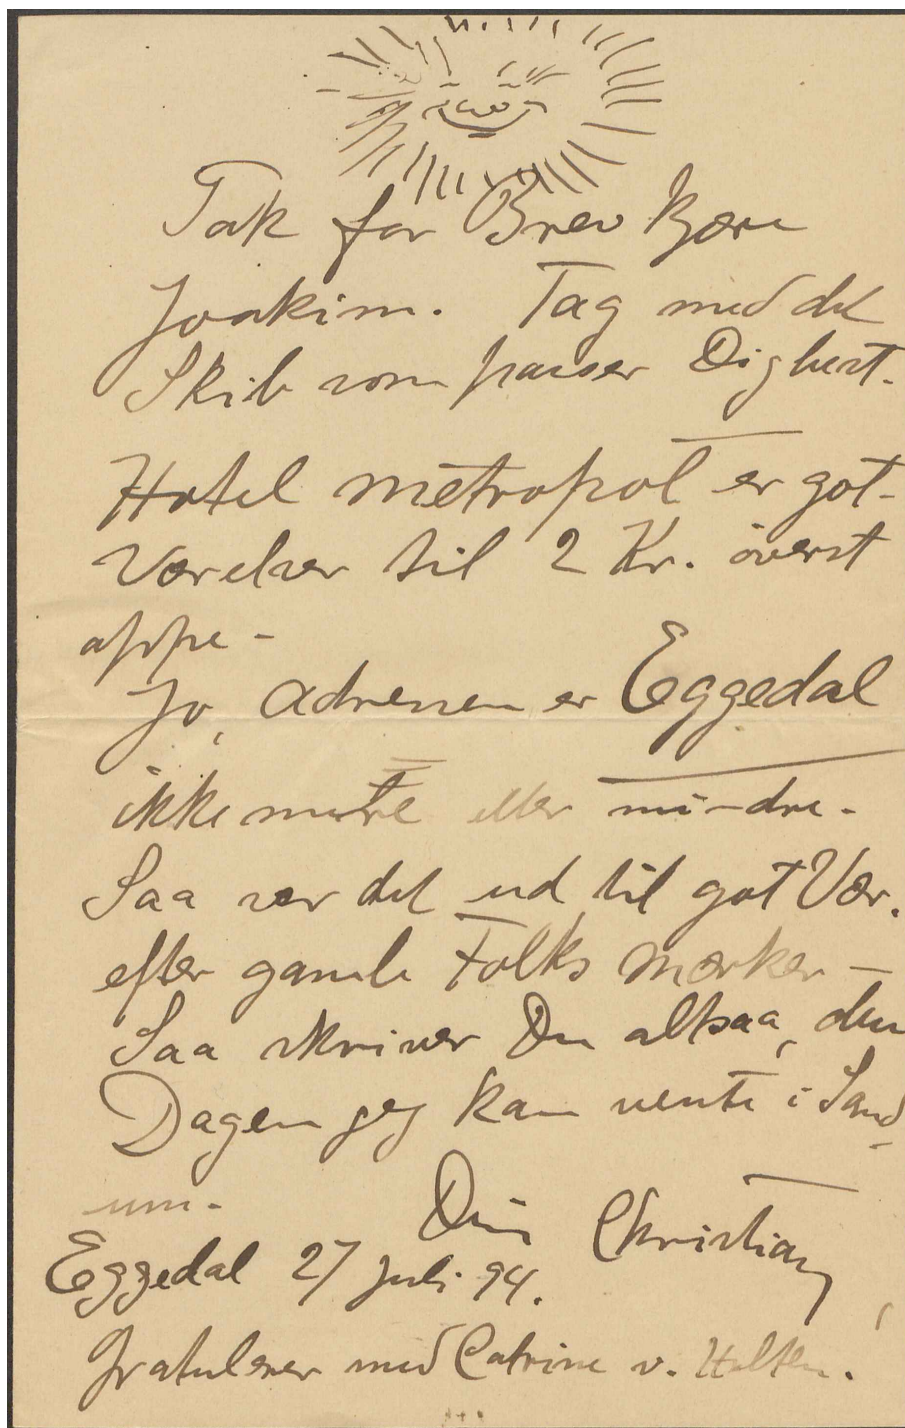 Tak for Brev Kjære
Joakim. Tag med det
Skib som passer Dig best.
Hotel metropol er got-
Værelser til 2 Kr. överst
oppe -
Jo, adressen er Eggedal
ikke mere eller mindre.
Saa ser det ud til got Vær.
efter gamle Folks Mærker -
Saa skriver Du altsaa, den
Dagen jeg kan vente i Sand
um.
Din Christian
Eggedal 27 Juli 94.
Gratulerer med Catrine v.